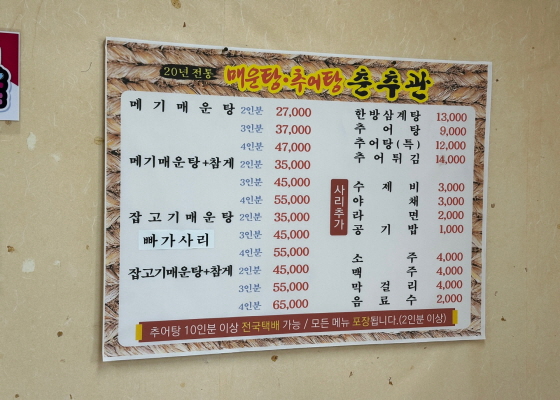 20년 전통 매운탕·추어탕 춘추관
메기매운탕 2인분 27,000
3인분 37,000
4인분 47,000
메기매운탕+참게 2인분 35,000
3인분 45,000
4인분 55,000
잡고기매운탕 2인분 35,000
빠가사리 3인분 45,000
4인분 55,000
잡고기매운탕+참게 2인분 45,000
3인분 55,000
4인분 65,000
한방삼계탕 13,000
추어탕 9,000
추어탕(특) 12,000
추어튀김 14,000
사리추가
수제비 3,000
야채 3,000
라면 2,000
공기밥 1,000
소주 4,000
맥주 4,000
막걸리 4,000
음료수 2,000
추어탕 10인분 이상 전국택배 가능 / 모든 메뉴 포장됩니다.(2인분 이상)